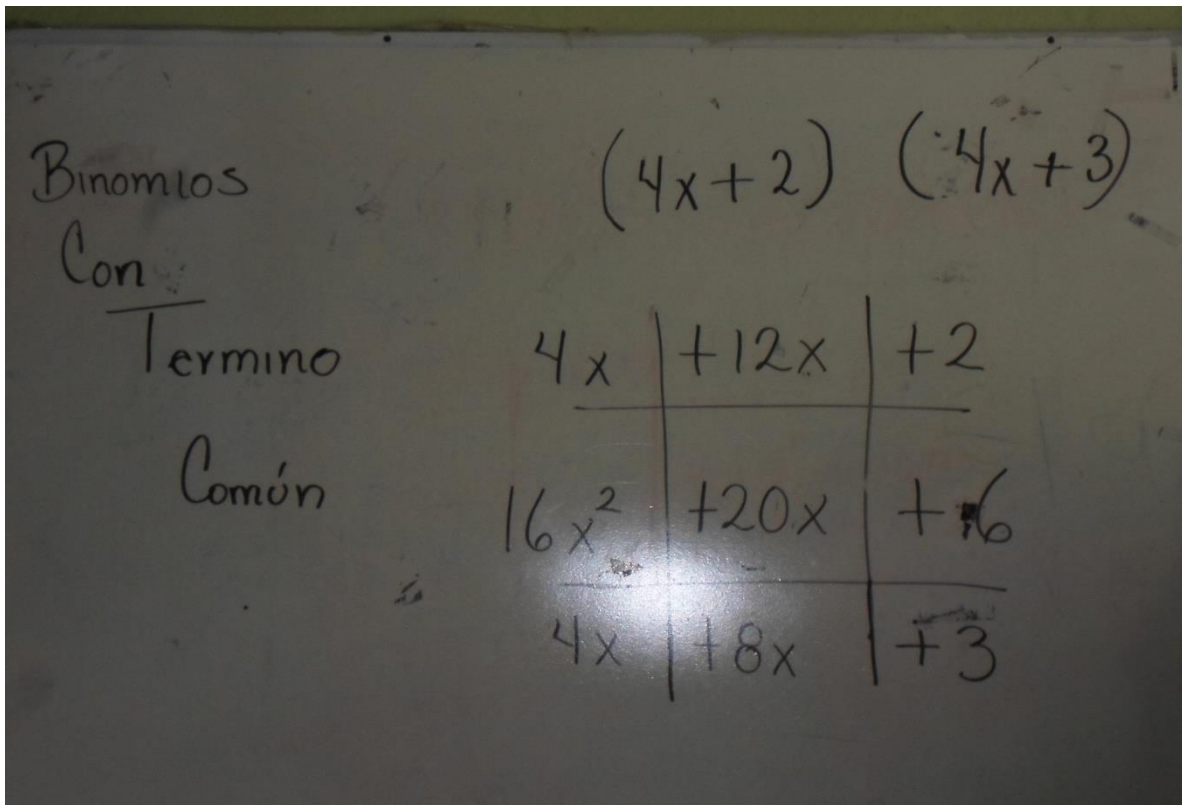 Binomios
Con
Termino
Común
(4x+2) (4x+3)
4x | +12x | +2
16x² | +20x | +6
4x | +8x | +3